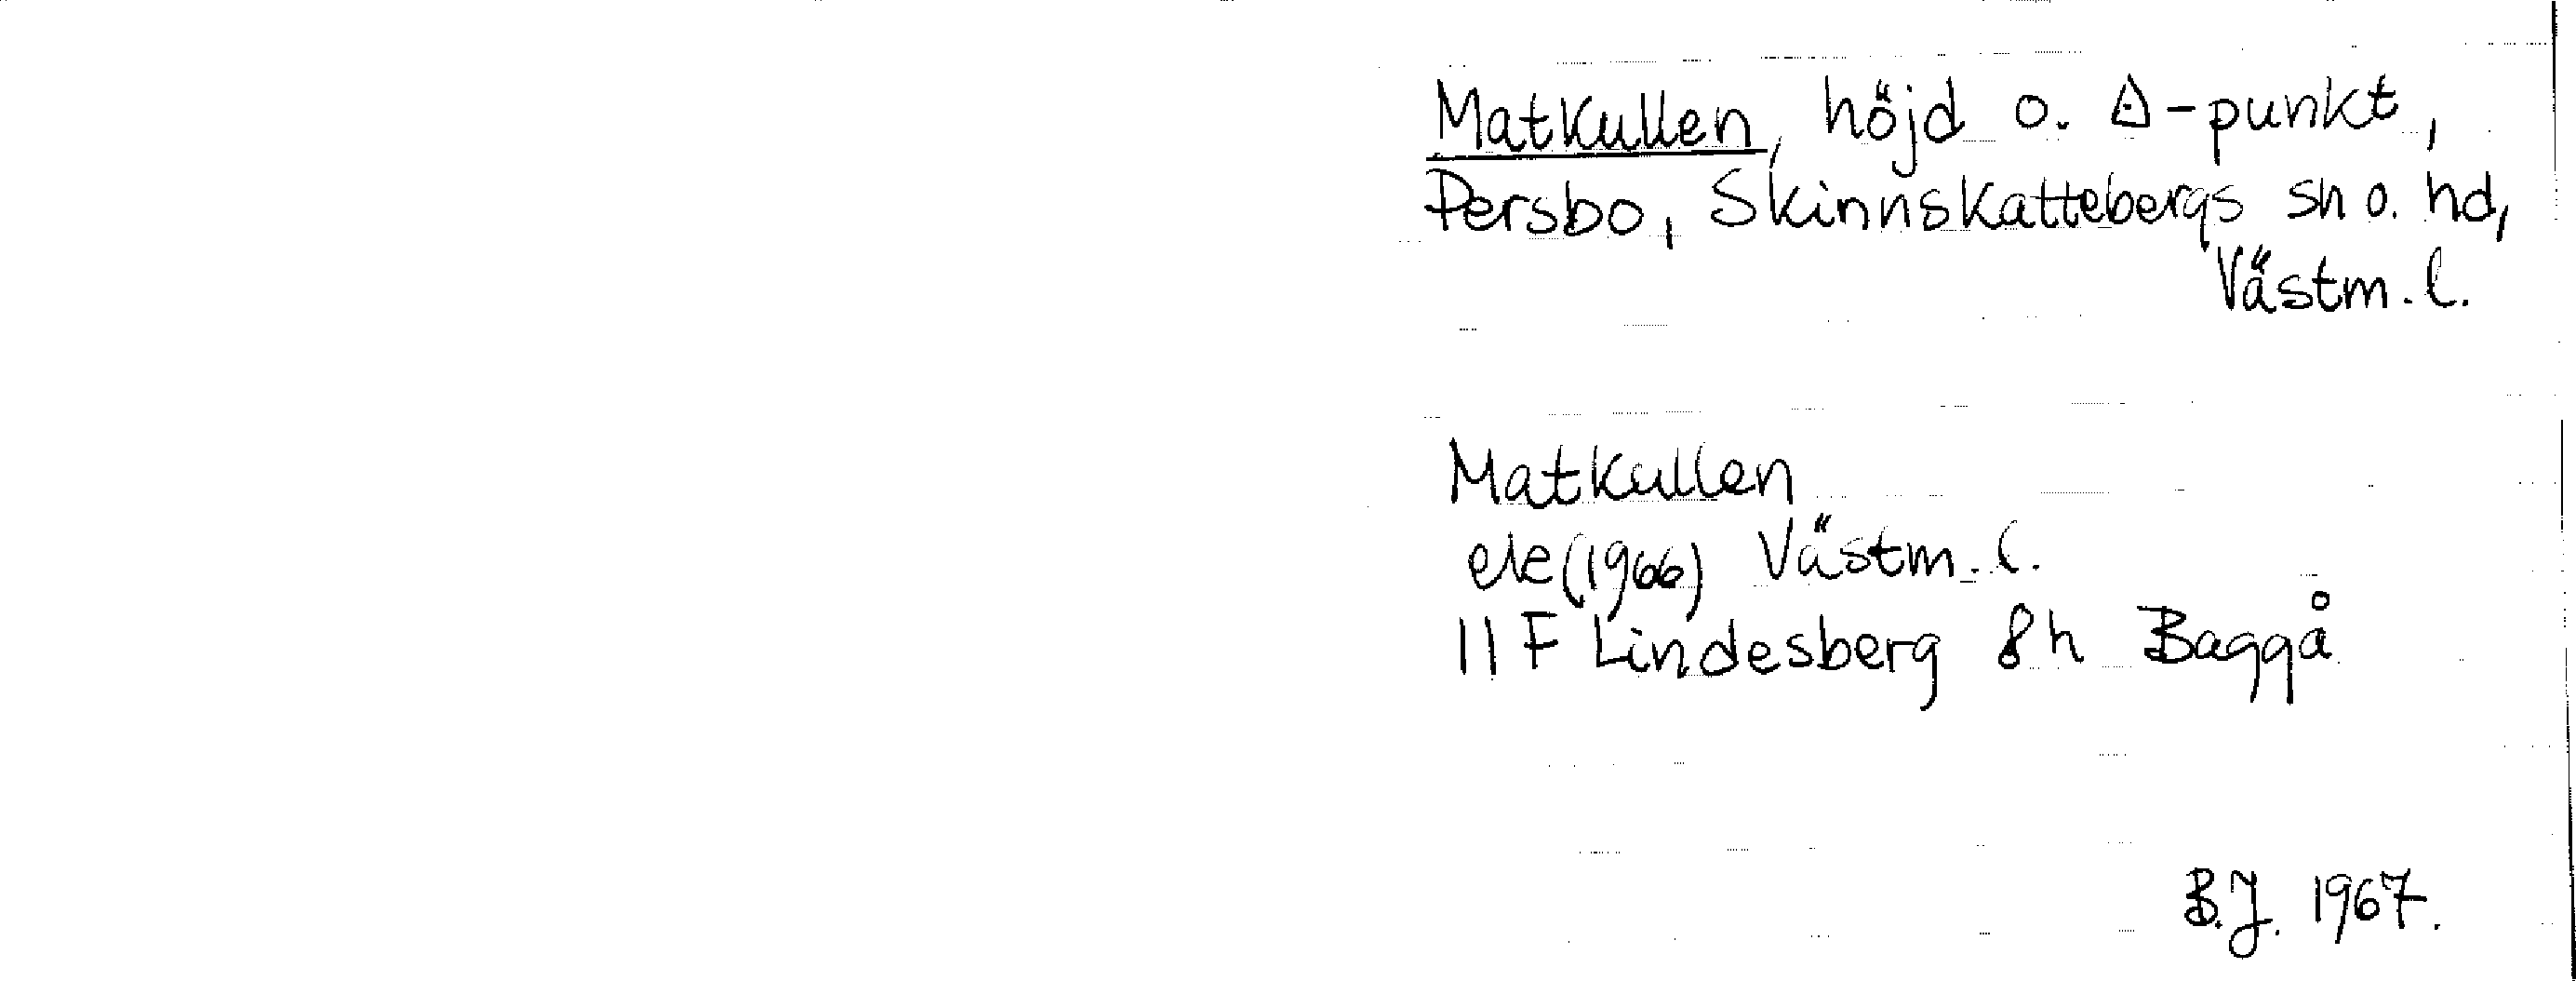 Matkullen, höjd o. △-punkt,
Persbo, Skinnskattebergs sn o. hd,
Västm. l.
Matkullen
ek (1966) Västm. l.
11 F Lindesberg 8h Baggå
B.J. 1967.